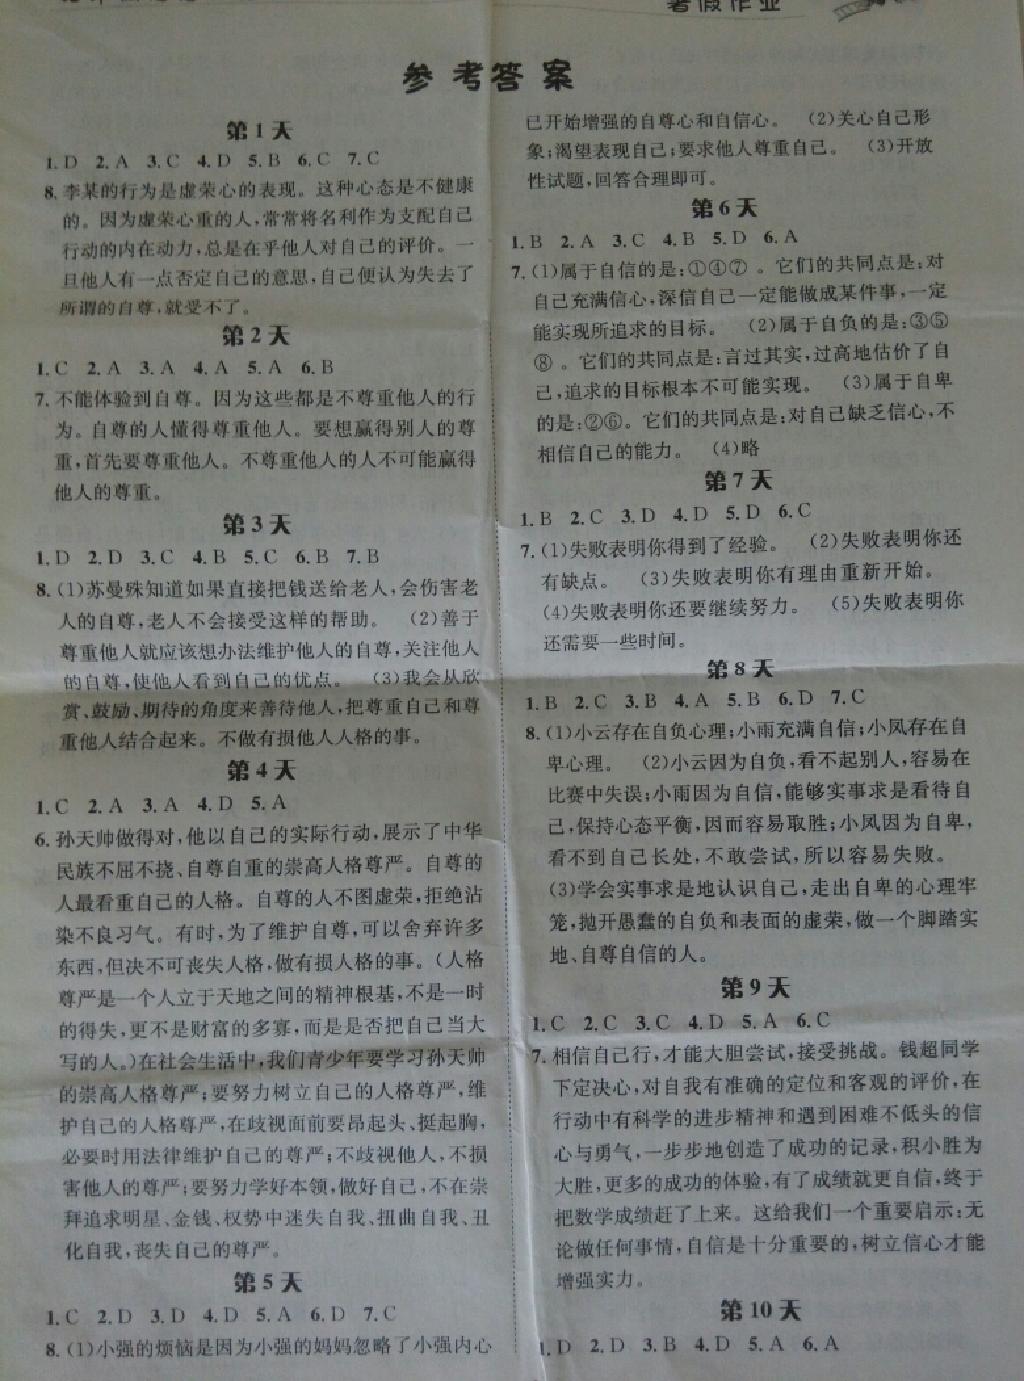 暑假作业
参考答案
第1天
1.D 2.A 3.C 4.D 5.B 6.C 7.C
8.李某的行为是虚荣心的表现。这种心态是不健康
的。因为虚荣心重的人,常常将名利作为支配自己
行动的内在动力,总是在乎他人对自己的评价。一
旦他人有一点否定自己的意思,自己便认为失去了
所谓的自尊,就受不了。
第2天
1.C 2.A 3.A 4.A 5.A 6.B
7.不能体验到自尊。因为这些都是不尊重他人的行
为。自尊的人懂得尊重他人。要想赢得别人的尊
重,首先要尊重他人。不尊重他人的人不可能赢得
他人的尊重。
第3天
1.D 2.D 3.C 4.B 5.C 6.B 7.B
8.(1)苏曼殊知道如果直接把钱送给老人,会伤害老
人的自尊,老人不会接受这样的帮助。 (2)善于
尊重他人就应该想办法维护他人的自尊,关注他人
的自尊,使他人看到自己的优点。 (3)我会从欣
赏、鼓励、期待的角度来善待他人,把尊重自己和尊
重他人结合起来。不做有损他人人格的事。
第4天
1.C 2.A 3.A 4.D 5.A
6.孙天帅做得对,他以自己的实际行动,展示了中华
民族不屈不挠、自尊自重的崇高人格尊严。自尊的
人最看重自己的人格。自尊的人不图虚荣,拒绝沾
染不良习气。有时,为了维护自尊,可以舍弃许多
东西,但决不可丧失人格,做有损人格的事。(人格
尊严是一个人立于天地之间的精神根基,不是一时
的得失,更不是财富的多寡,而是是否把自己当大
写的人。)在社会生活中,我们青少年要学习孙天帅
的崇高人格尊严;要努力树立自己的人格尊严,维
护自己的人格尊严,在歧视面前要昂起头、挺起胸,
必要时用法律维护自己的尊严;不歧视他人,不损
害他人的尊严;要努力学好本领,做好自己,不在崇
拜追求明星、金钱、权势中迷失自我、扭曲自我、丑
化自我,丧失自己的尊严。
第5天
1.C 2.D 3.D 4.D 5.A 6.D 7.C
8.(1)小强的烦恼是因为小强的妈妈忽略了小强内心
已开始增强的自尊心和自信心。 (2)关心自己形
象;渴望表现自己;要求他人尊重自己。 (3)开放
性试题,回答合理即可。
第6天
1.B 2.A 3.C 4.B 5.D 6.A
7.(1)属于自信的是:①④⑦。它们的共同点是:对
自己充满信心,深信自己一定能做成某件事,一定
能实现所追求的目标。 (2)属于自负的是:③⑤
⑧。它们的共同点是:言过其实,过高地估价了自
己,追求的目标根本不可能实现。 (3)属于自卑
的是:②⑥。它们的共同点是:对自己缺乏信心,不
相信自己的能力。 (4)略
第7天
1.B 2.C 3.D 4.D 5.D 6.C
7.(1)失败表明你得到了经验。 (2)失败表明你还
有缺点。 (3)失败表明你有理由重新开始。
(4)失败表明你还要继续努力。 (5)失败表明你
还需要一些时间。
第8天
1.B 2.C 3.B 4.A 5.B 6.D 7.C
8.(1)小云存在自负心理;小雨充满自信;小凤存在自
卑心理。 (2)小云因为自负,看不起别人,容易在
比赛中失误;小雨因为自信,能够实事求是看待自
己,保持心态平衡,因而容易取胜;小凤因为自卑,
看不到自己长处,不敢尝试,所以容易失败。
(3)学会实事求是地认识自己,走出自卑的心理牢
笼,抛开愚蠢的自负和表面的虚荣,做一个脚踏实
地、自尊自信的人。
第9天
1.C 2.C 3.C 4.D 5.A 6.C
7.相信自己行,才能大胆尝试,接受挑战。钱超同学
下定决心,对自我有准确的定位和客观的评价,在
行动中有科学的进步精神和遇到困难不低头的信
心与勇气,一步步地创造了成功的记录,积小胜为
大胜,更多的成功的体验,有了成绩就更自信,终于
把数学成绩赶了上来。这给我们一个重要启示:无
论做任何事情,自信是十分重要的,树立信心才能
增强实力。
第10天
1.D 2.D 3.B 4.D 5.A 6.A